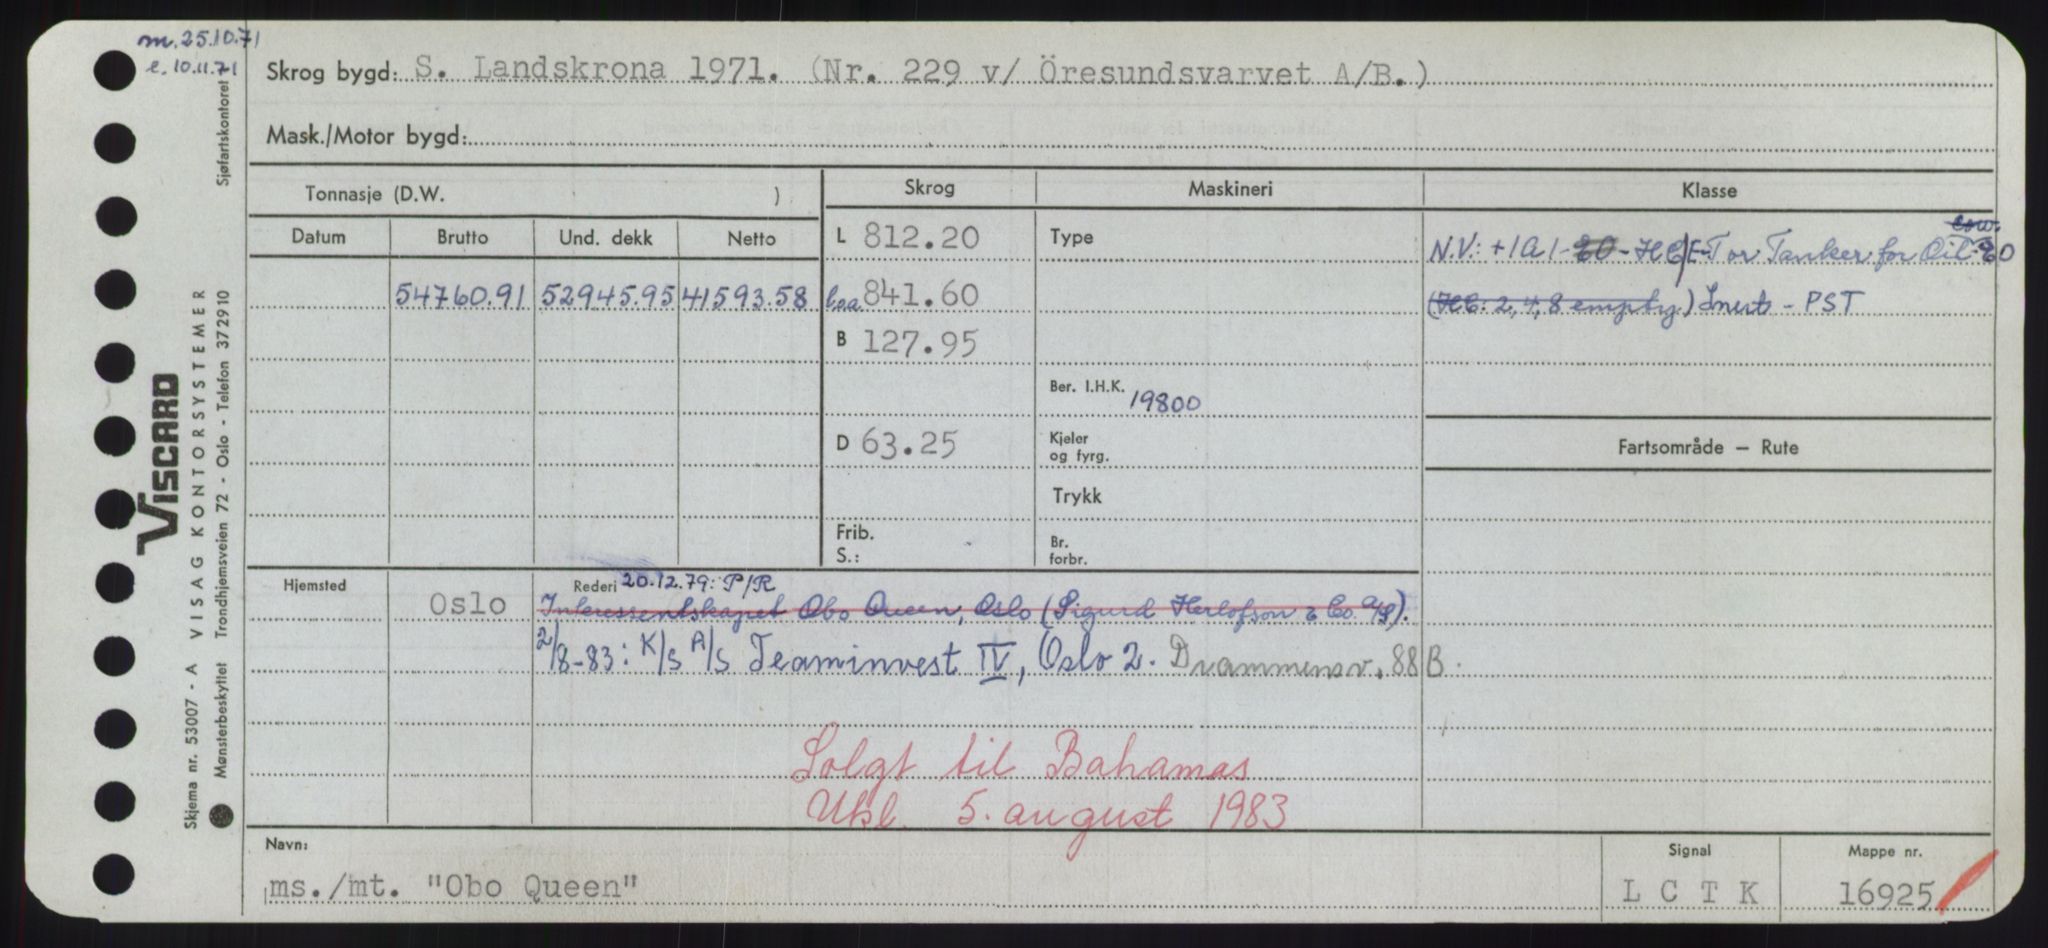 m. 25.10.71
e. 10.11.71
Skrog bygd: S. Landskrona 1971. (Nr. 229 v/ Öresundsvarvet A/B.)
Mask./Motor bygd:
Tonnasje (D.W. )
Skrog
Maskineri
Klasse
Datum
Brutto
Und. dekk
Netto
L 812.20
Type
cow.
N.V.: +1A1-E0-HC/E-T or Tanker for Oil-E0
54760.91 52945.95 41593.58
loa 841.60
(HC: 2, 4, 8 empty) Inert - PST
B 127.95
Ber. I.H.K. 19800
D 63.25
Kjeler
og fyrg.
Fartsområde — Rute
Trykk
Frib.
S.:
Br.
forbr.
Hjemsted
Oslo
Rederi 20.12.79: P/R
Interessentskapet Obo Queen, Oslo (Sigurd Herlofson & Co. A/S).
2/8-83: K/S A/S Teaminvest IV, Oslo 2. Drammensv. 88 B.
Solgt til Bahamas
Utkl. 5. august 1983
Navn:
ms./mt. "Obo Queen"
Signal
L C T K
Mappe nr.
16925
VISCARD
Skjema nr. 53007 - A VISAG KONTORSYSTEMER
Mønsterbeskyttet Trondhjemsveien 72 - Oslo - Telefon 372910
Sjøfartskontoret